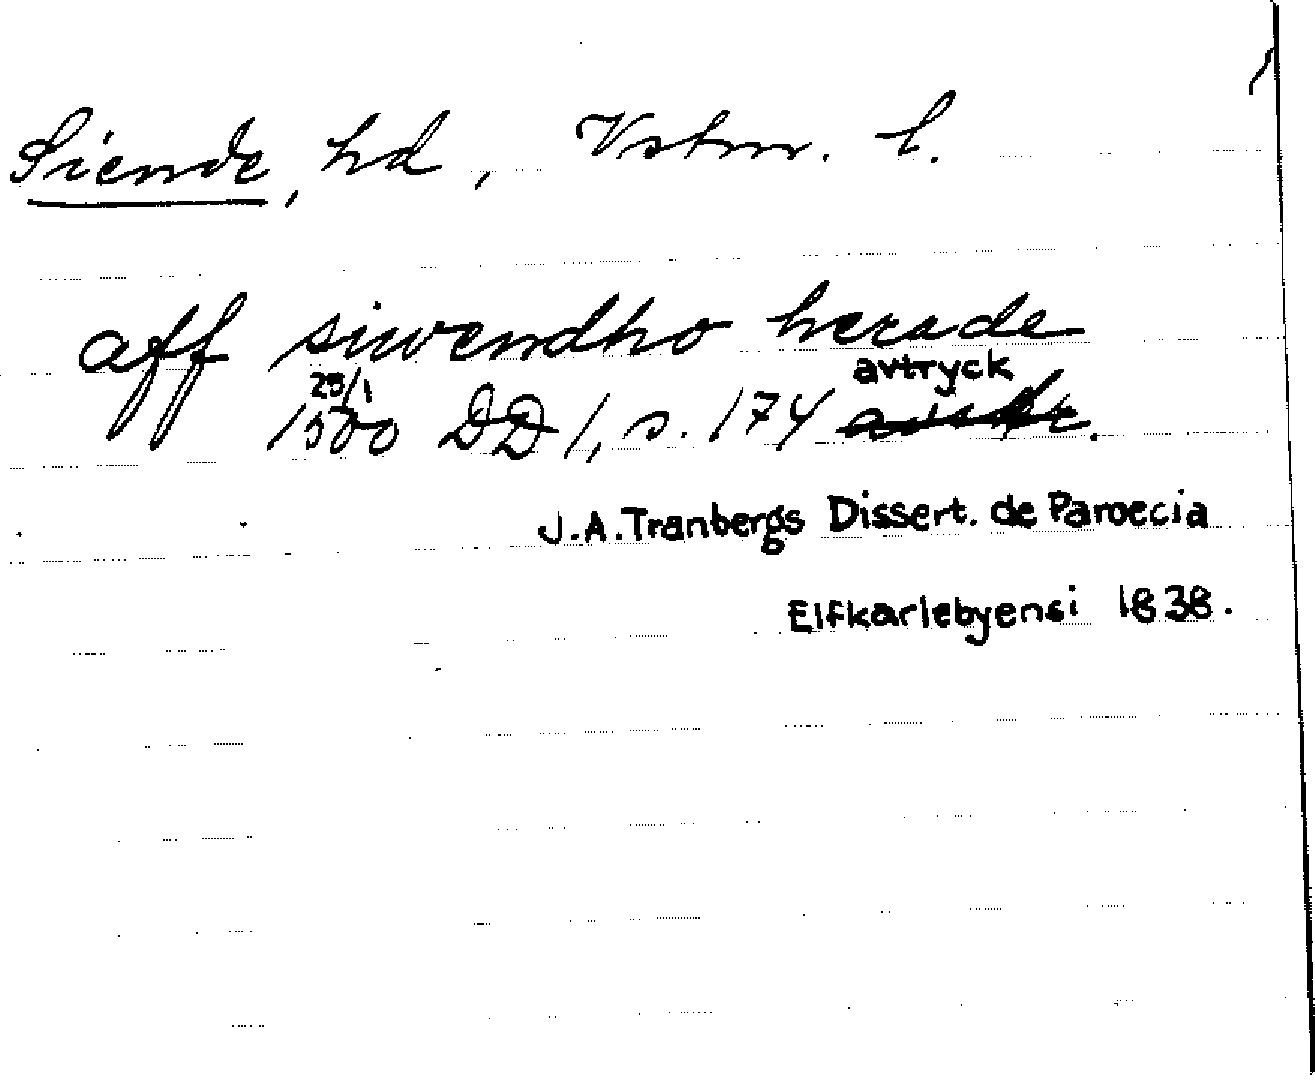 Siende, hd, Vstm. l.
aff siwendho herade
25/1 avtryck
1500 DD 1, s. 174
J.A.Tranbergs Dissert. de Paroecia
Elfkarlebyensi 1838.